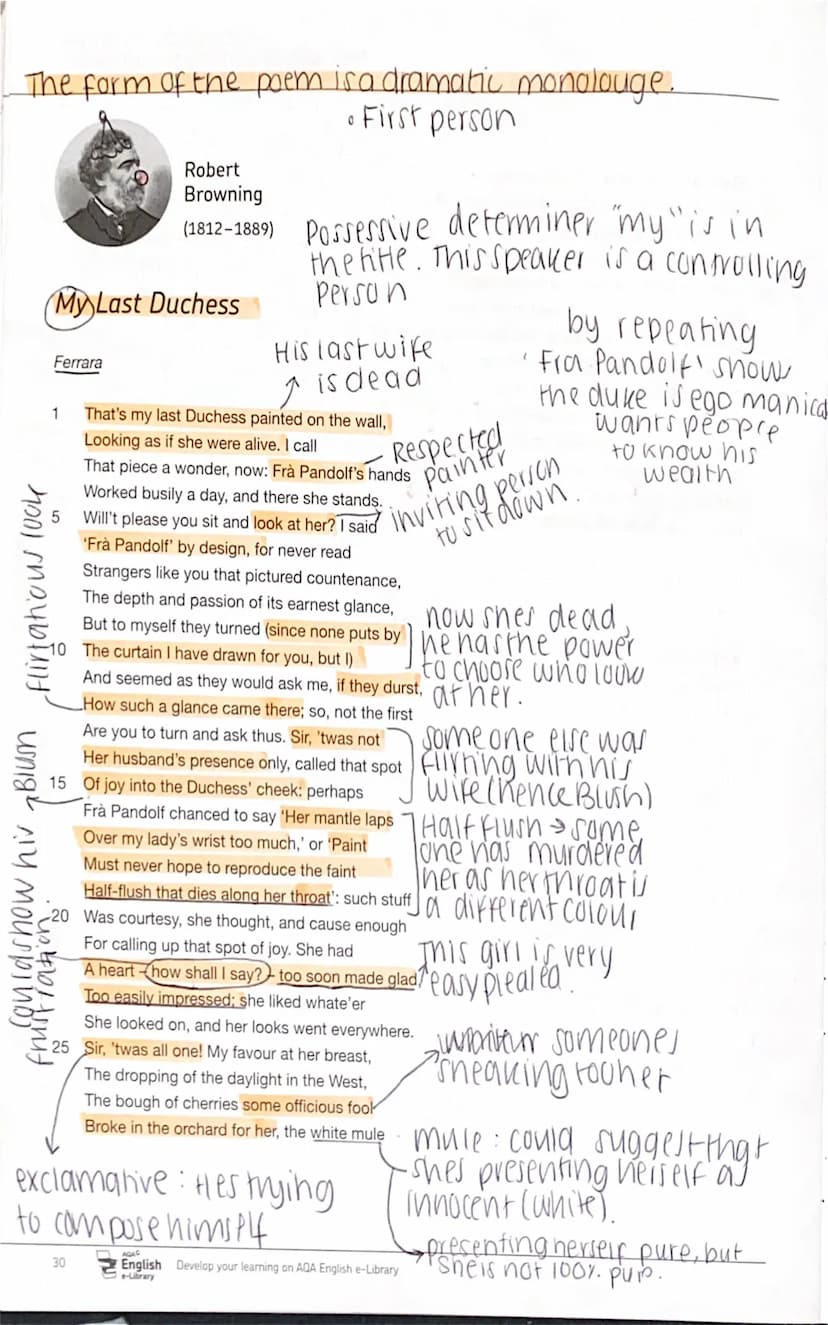 The form of the poem is a dramatic monolouge.
• First person
Robert
Browning
(1812–1889)
Possessive determiner "my" is in
the title. This speaker is a controlling
person
My Last Duchess
Ferrara
His last wife
is dead
by repeating
'Fra Pandolf' show
the duke is ego manica
wants people
to know his
wealth
1 That's my last Duchess painted on the wall,
Looking as if she were alive. I call
That piece a wonder, now: Frà Pandolf's hands
Worked busily a day, and there she stands.
5 Will't please you sit and look at her? I said
'Frà Pandolf' by design, for never read
Strangers like you that pictured countenance,
The depth and passion of its earnest glance,
But to myself they turned (since none puts by
10 The curtain I have drawn for you, but I)
And seemed as they would ask me, if they durst,
How such a glance came there; so, not the first
Are you to turn and ask thus. Sir, 'twas not
Her husband's presence only, called that spot
15 Of joy into the Duchess' cheek: perhaps
Frà Pandolf chanced to say 'Her mantle laps
Over my lady's wrist too much,' or 'Paint
Must never hope to reproduce the faint
Half-flush that dies along her throat': such stuff
20 Was courtesy, she thought, and cause enough
For calling up that spot of joy. She had
A heart – how shall I say? – too soon made glad,
Too easily impressed; she liked whate'er
She looked on, and her looks went everywhere.
25 Sir, 'twas all one! My favour at her breast,
The dropping of the daylight in the West,
The bough of cherries some officious fool
Broke in the orchard for her, the white mule
Respected
painter
inviting person
to sit down.
now shes dead,
he has the power
to choose who look
at her.
someone else was
flirting with his
wife (hence Blush)
Half flush → some
one has murdered
her as her throat is
a different colour
This girl is very
easy plealed.
someones
sneaking to her
mule: could suggest that
shes presenting herself as
innocent (white).
presenting herself pure, but
she is not 100% pure.
flirtatious look
Blush
could show his
frustration.
exclamative: Hes trying
to compose himself
30
AQA
English
e-Library
Develop your learning on AQA English e-Library